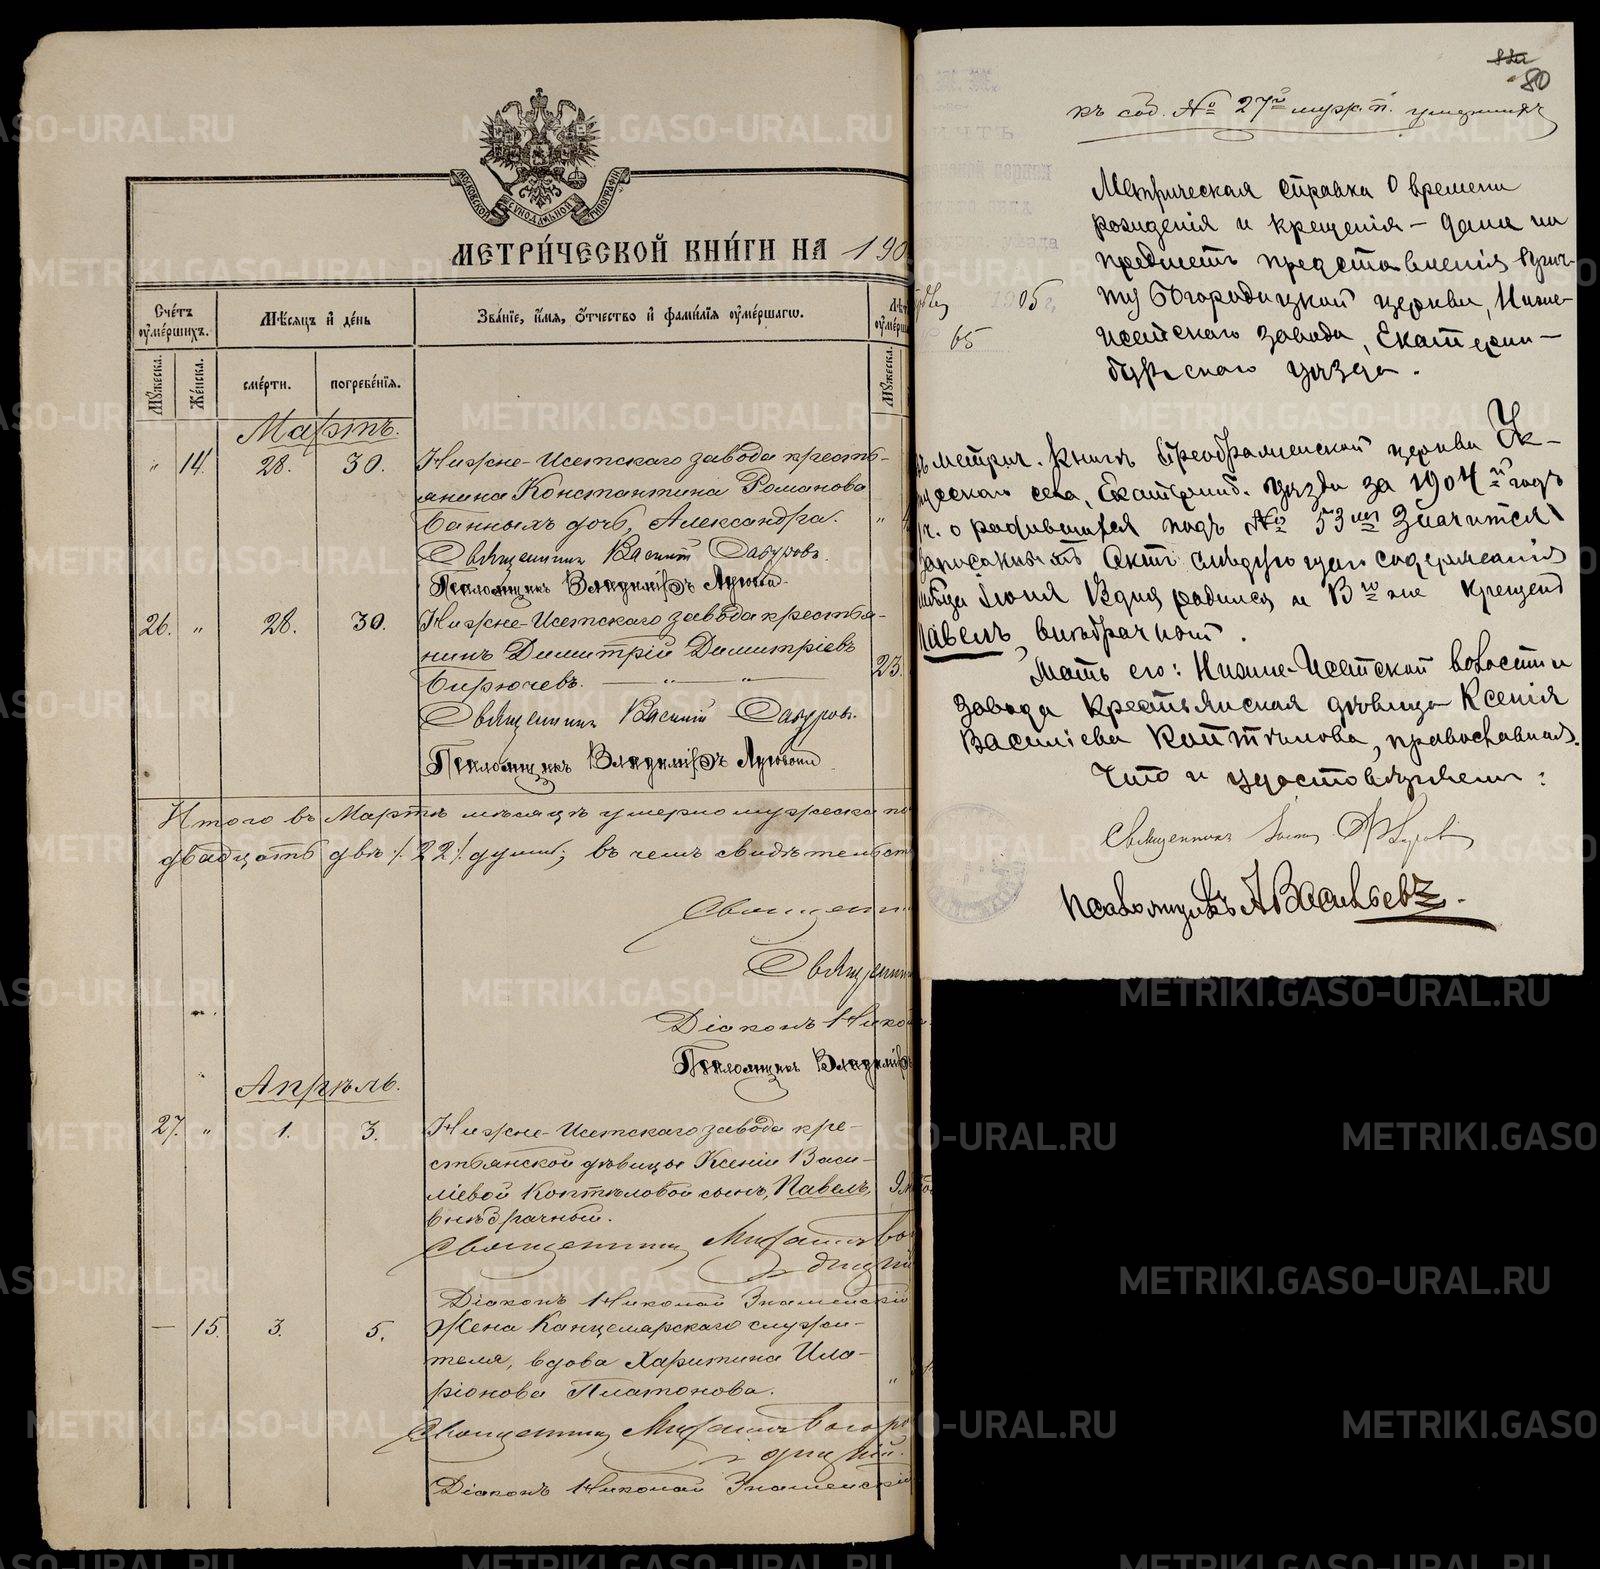 МЕТРИЧЕСКОЙ КНИГИ НА 190
МОСКОВСКОЙ СѴНОДАЛЬНОЙ ТИПОГРАФІИ
Счетъ умершихъ.
Мужеска.
Женска.
Мѣсяцъ и день
смерти.
погребенія.
Званіе, имя, отчество и фамилія умершаго.
Мужеска.
Мартъ.
" 14. 28. 30. Нижне-Исетскаго завода кресть-
янина Константина Романова
Банныхъ дочь, Александра.
Священникъ Василій
Псаломщикъ Владиміръ Луговой
26. " 28. 30. Нижне-Исетскаго завода крестья-
нинъ Димитрій Димитріевъ
Бирючевъ. 23.
Священникъ Василій
Псаломщикъ Владиміръ Луговой
Итого въ Мартѣ мѣсяцѣ умерло мужеска по
двадцать двѣ /22/ души; въ чемъ свидѣтельст
Священни
Священни
Діаконъ Нико
Псаломщикъ Владиміръ
Апрѣль.
27. " 1. 3. Нижне-Исетскаго завода кре-
стьянской дѣвицы Ксеніи Васи-
ліевой Коптѣловой сынъ, Павелъ,
внѣбрачный.
Священникъ Михаилъ Бого
Діаконъ Николай Знаменскій
— 15. 3. 5. Жена Канцелярскаго служи-
теля, вдова Харитина Ила-
ріонова Платонова.
Священникъ Михаилъ Богоро
дицкій.
Діаконъ Николай Знаменскій
80
къ соб. № 27й муж. п. умершихъ
Метрическая справка о времени
рожденія и крещенія – дана на
предметъ представленія причт
ту Богородицкой церкви, Нижне-
Исетскаго завода, Екатерин-
бургскаго уѣзда.
1905 г.
65
метрич. книгѣ Преображенской церкви Ук-
тусскаго села, Екатеринб. уѣзда за 1904й годъ
ч. о родившихся подъ № 53мъ значится
записаннымъ актъ слѣдующаго содержанія
мѣсяца Іюня родился и крещенъ
Павелъ, внѣбрачный.
Мать его: Нижне-Исетской волости и
завода крестьянская дѣвица Ксенія
Василіева Коптѣлова, православная.
Что и удостовѣряемъ:
Священникъ
Псаломщикъ А Васильевъ.
METRIKI.GASO-URAL.RU